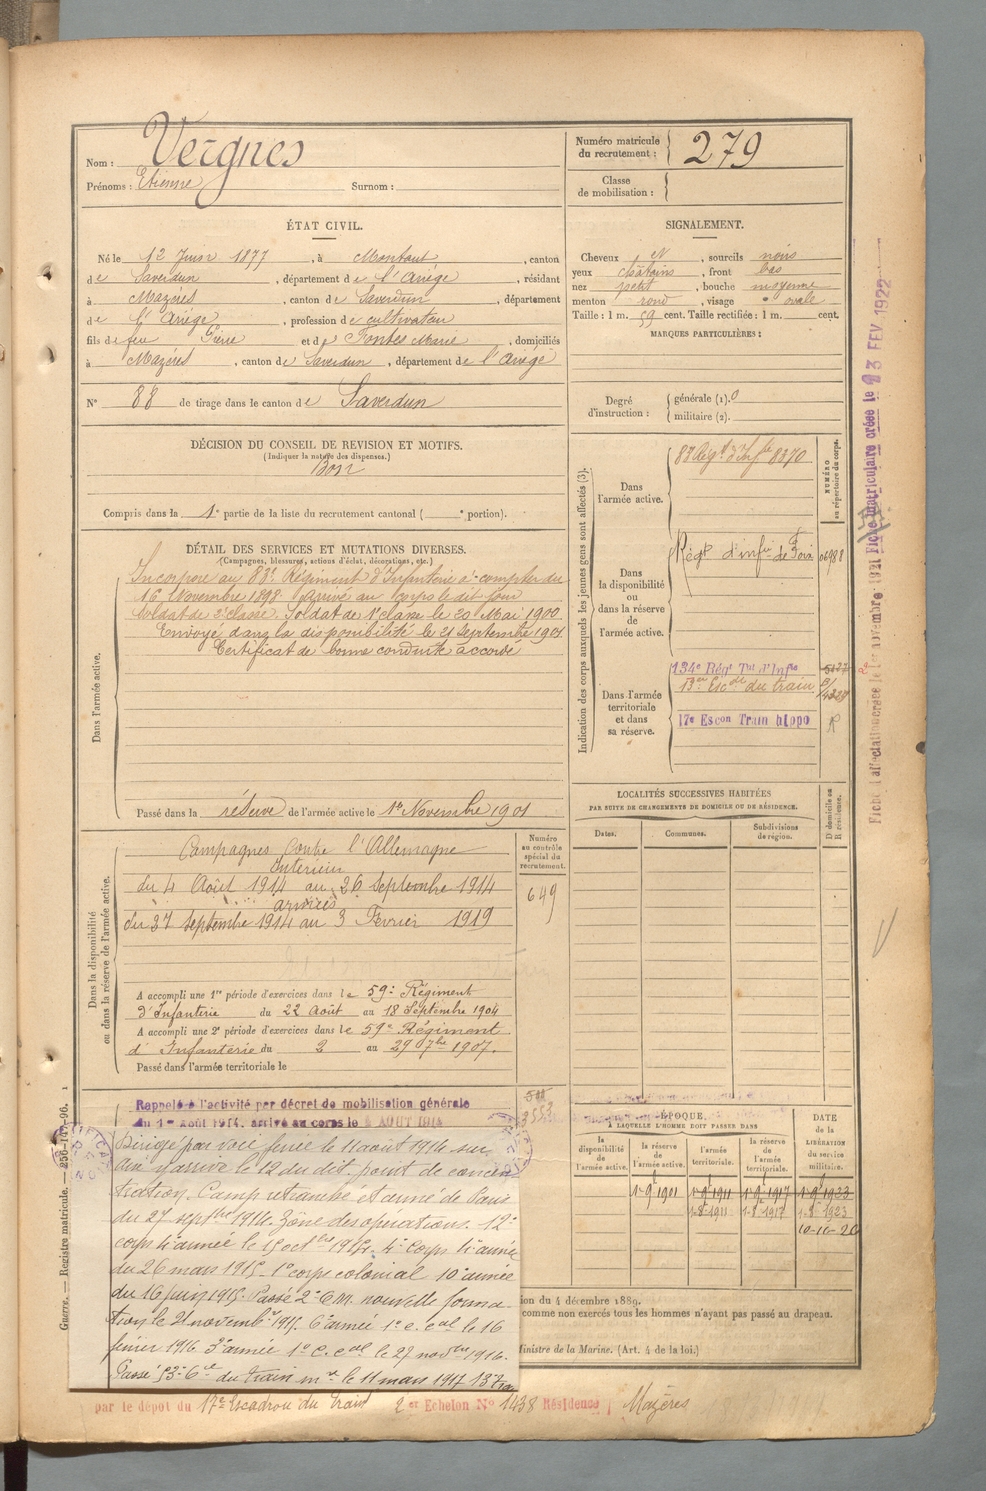 Nom : Vergnes
Prénoms : Etienne Surnom :
Numéro matricule du recrutement : 279
Classe de mobilisation :
ÉTAT CIVIL.
Né le 12 Juin 1877, à Montaut, canton
de Saverdun, département de l'Ariège, résidant
à Mazères, canton de Saverdun, département
de l'Ariège, profession de cultivateur
fils de feu Pierre et de Fontes Marie, domiciliés
à Mazères, canton de Saverdun, département de l'Ariège
N° 88 de tirage dans le canton de Saverdun
SIGNALEMENT.
Cheveux et, sourcils noirs
yeux châtains, front bas
nez petit, bouche moyenne
menton rond, visage ovale
Taille : 1 m. 59 cent. Taille rectifiée : 1 m. cent.
MARQUES PARTICULIÈRES :
Degré d'instruction : générale (1). 0
militaire (2).
DÉCISION DU CONSEIL DE REVISION ET MOTIFS.
(Indiquer la nature des dispenses.)
Bon
Compris dans la 1e partie de la liste du recrutement cantonal ( e portion).
DÉTAIL DES SERVICES ET MUTATIONS DIVERSES.
(Campagnes, blessures, actions d'éclat, décorations, etc.)
Dans l'armée active.
Incorporé au 83e Régiment d'Infanterie à compter du
16 Novembre 1898. Arrivé au corps le dit jour
Soldat de 2e classe. Soldat de 1e classe le 20 Mai 1900
Envoyé dans la disponibilité le 21 Septembre 1901
Certificat de bonne conduite accordé
Passé dans la réserve de l'armée active le 1er Novembre 1901
Indication des corps auxquels les jeunes gens sont affectés (3).
NUMÉRO au répertoire du corps.
Dans l'armée active.
83 Régt d'Infie 8370
Dans la disponibilité ou dans la réserve de l'armée active.
Régt d'infie de Foix 06988
Dans l'armée territoriale et dans sa réserve.
134e Régt Tal d'Infie
13e Escon du train
17e Escon Train hippo R
LOCALITÉS SUCCESSIVES HABITÉES
PAR SUITE DE CHANGEMENTS DE DOMICILE OU DE RÉSIDENCE.
Dates. Communes. Subdivisions de région. D domicile ou R résidence.
Dans la disponibilité ou dans la réserve de l'armée active.
Numéro au contrôle spécial du recrutement.
649
Campagnes contre l'Allemagne
Intérieur
du 4 Août 1914 au 26 Septembre 1914
armées
du 27 Septembre 1914 au 3 Février 1919
A accompli une 1re période d'exercices dans le 59e Régiment
d'Infanterie du 22 août au 18 Septembre 1904
A accompli une 2e période d'exercices dans le 59e Régiment
d'Infanterie du 2 au 29 7bre 1907.
Passé dans l'armée territoriale le
Rappelé à l'activité par décret de mobilisation générale
du 1er Août 1914, arrivé au corps le AOUT 1914
Dirigé par voie ferrée le 11 août 1914 sur
y arrive le 12 du dit point de concen
tration. Camp retranché et armée de Paris
du 27 septbre 1914. Zône des opérations. 12e
corps 4e armée le 15 1914. 4e Corps 4e armée
du 26 mars 1915. 1e corps colonial 10e armée
du 16 juin 1915. Passé 2e C.M. nouvelle forma
tion le 21 novembre 1915. 6e armée 1e c. cal le 16
février 1916 3e armée 1e C. cal le 27 novbre 1916.
Passé 53e Cie du train le 11 mars 1917
ÉPOQUE
À LAQUELLE L'HOMME DOIT PASSER DANS
la disponibilité de l'armée active. la réserve de l'armée active. l'armée territoriale. la réserve de l'armée territoriale.
DATE de la LIBÉRATION du service militaire.
1-9bre 1901 1-9bre 1911 1-9bre 1917 1-9bre 1923
1-8bre 1911 1-8bre 1917 1-8bre 1923
10-10-26
ion du 4 décembre 1889.
comme non exercés tous les hommes n'ayant pas passé au drapeau.
Ministre de la Marine. (Art. 4 de la loi.)
par le dépot du 17e Escadron du Train 2er Echelon N° 1438 Résidence Mazères
Guerre. — Registre matricule. — 250-147-96.
Fiche d'affectation créée le 1er novembre 1921 Fiche matriculaire créée le 3 FEV 1922